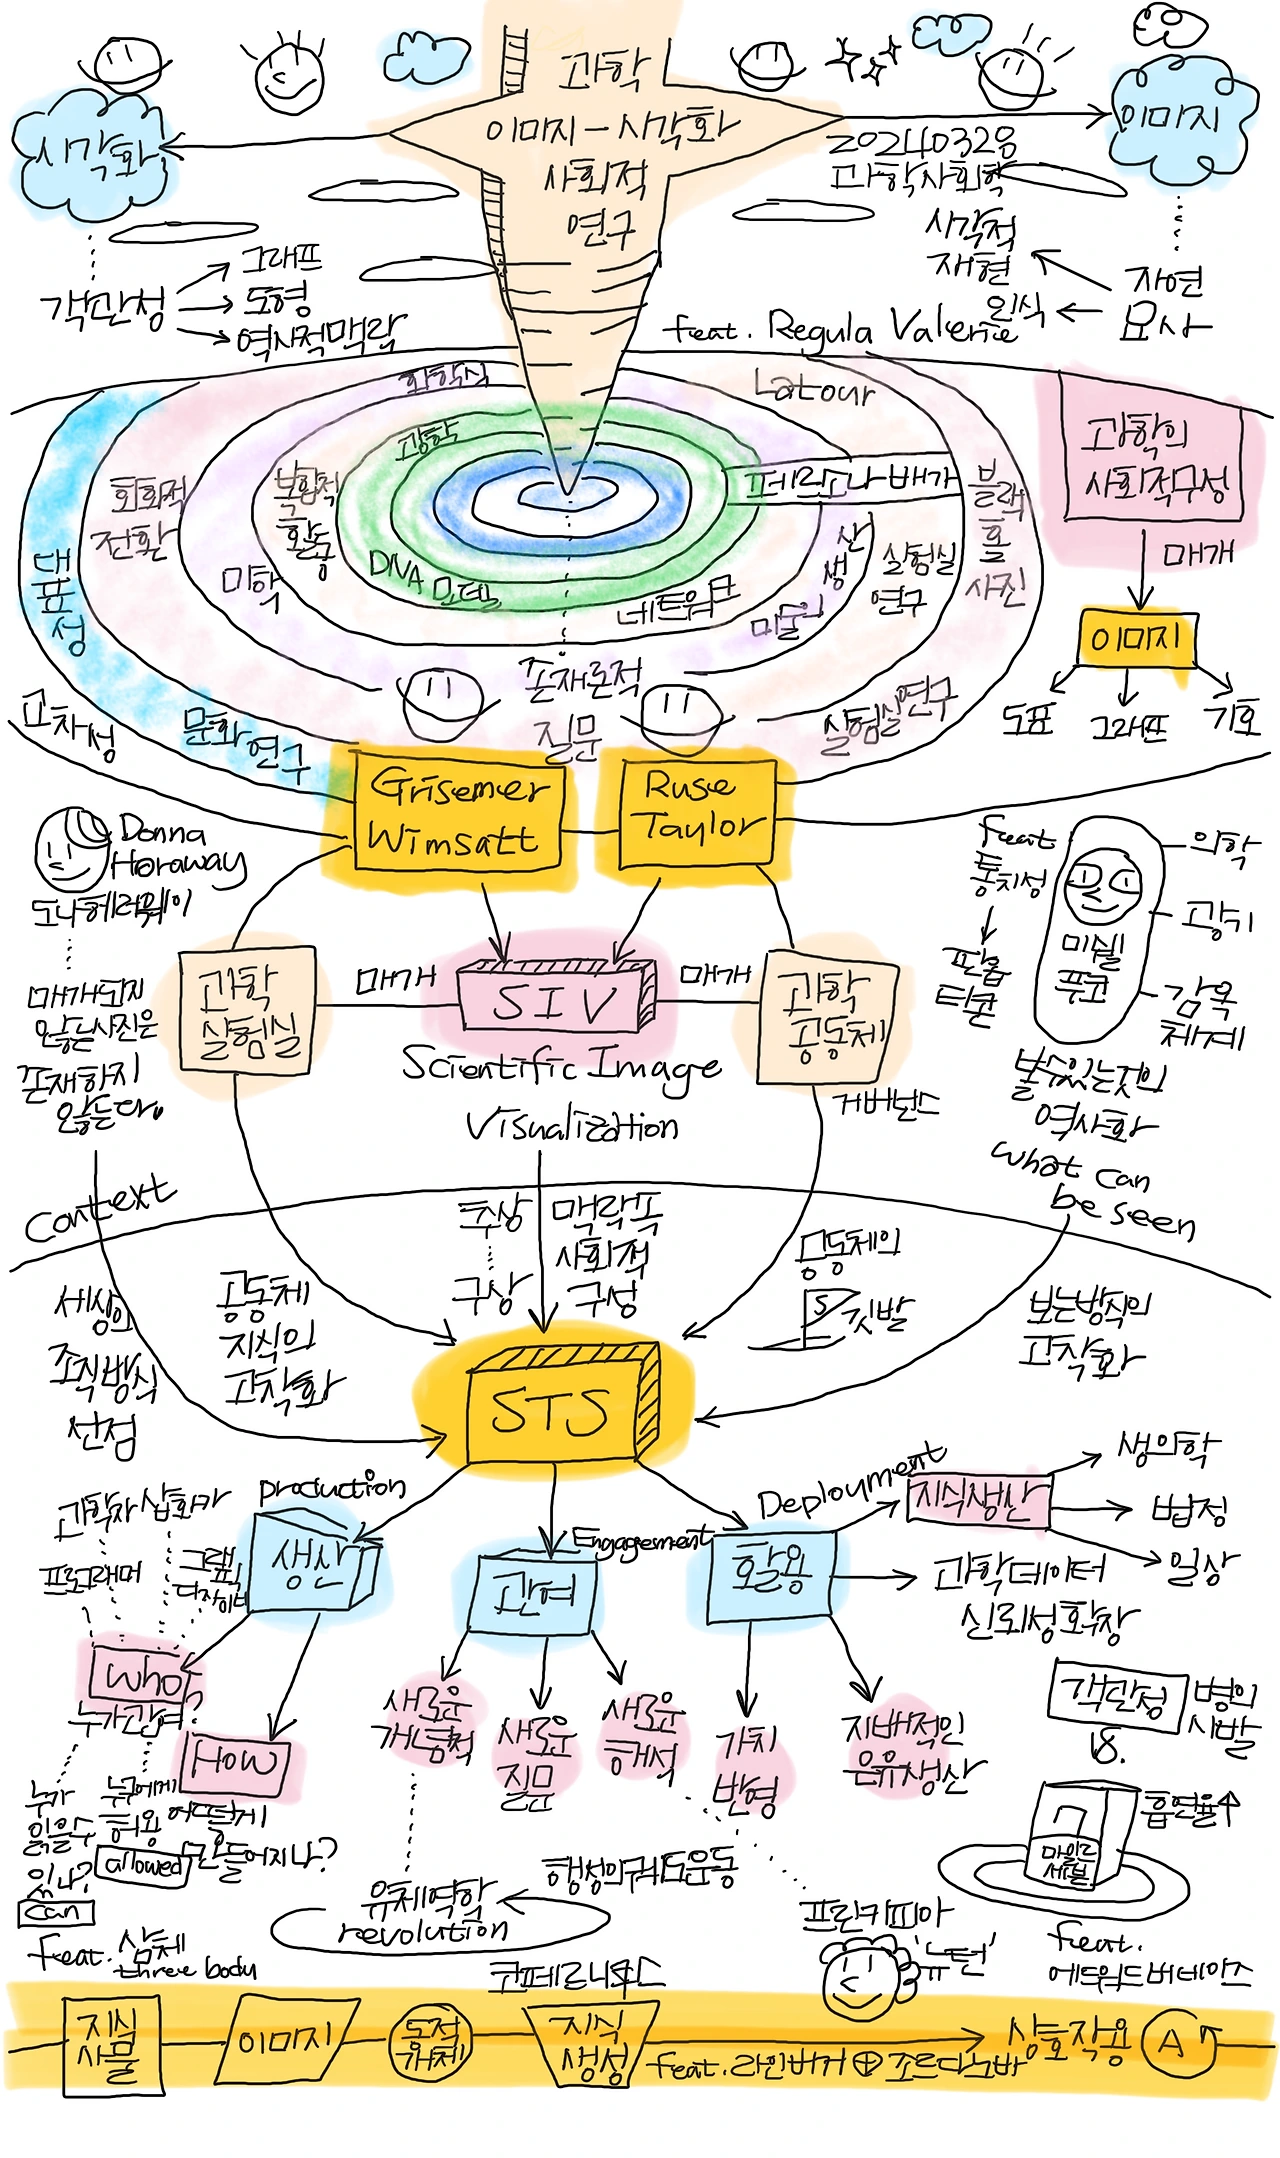 과학
이미지-시각화
사회적
연구
시각화
이미지
20240328
과학사회학
객관성
그래프
도형
역사적맥락
시각적
재현
인식
자연
묘사
feat. Regula Valerie
화학식
Latour
광학
복합적
활동
회화적
전환
미학
DNA 모델
네트워크
페르소나 배가
블랙
홀
사진
실험실
연구
생산
미술
대
표
성
존재론적
질문
실험실연구
문화
연구
고차성
과학의
사회적구성
매개
이미지
도표
그래프
기호
Grisemer
Wimsatt
Ruse
Taylor
Donna
Haraway
도나 헤러웨이
매개되지
않는사진은
존재하지
않는다.
과학
실험실
매개
SIV
매개
과학
공동체
거버넌스
Scientific Image
Visualization
feat
통치성
판옵
티콘
미쉘
푸코
의학
광기
감옥
체계
볼수있는것의
역사화
what can
be seen
Context
추상
구상
맥락폭
사회적
구성
세상의
조직방식
선점
공동체
지식의
고착화
공동체의
S
깃발
보는방식의
고착화
STS
production
생산
Engagement
관여
Deployment
활용
지식생산
생의학
법정
일상
과학데이터
신뢰성확장
과학자
삽화가
프로그래머
그래픽
디자이너
who
누가관여?
How
누가
읽을수
있나?
can
누구에게
허용
allowed
어떻게
만들어지나?
새로운
개념적
새로운
질문
새로운
해석
가치
반영
지배적인
은유생산
객관성
병의
시발
vs.
흡연율↑
마일드
세븐
feat.
에드워드버네이즈
유체역학
revolution
행성의궤도운동
코페르니쿠스
프린키피아
'뉴턴'
feat. 삼체
three body
지식
사물
이미지
동적
개체
지식
생성
feat. 라인버거 ⊕ 조르다노바
상호작용
A